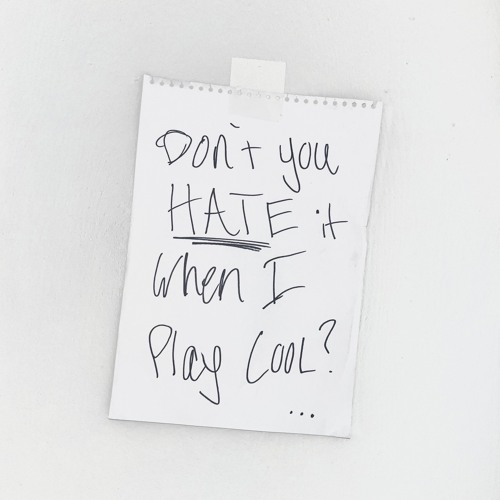 Don't you
HATE it
when I
Play COOL?
...